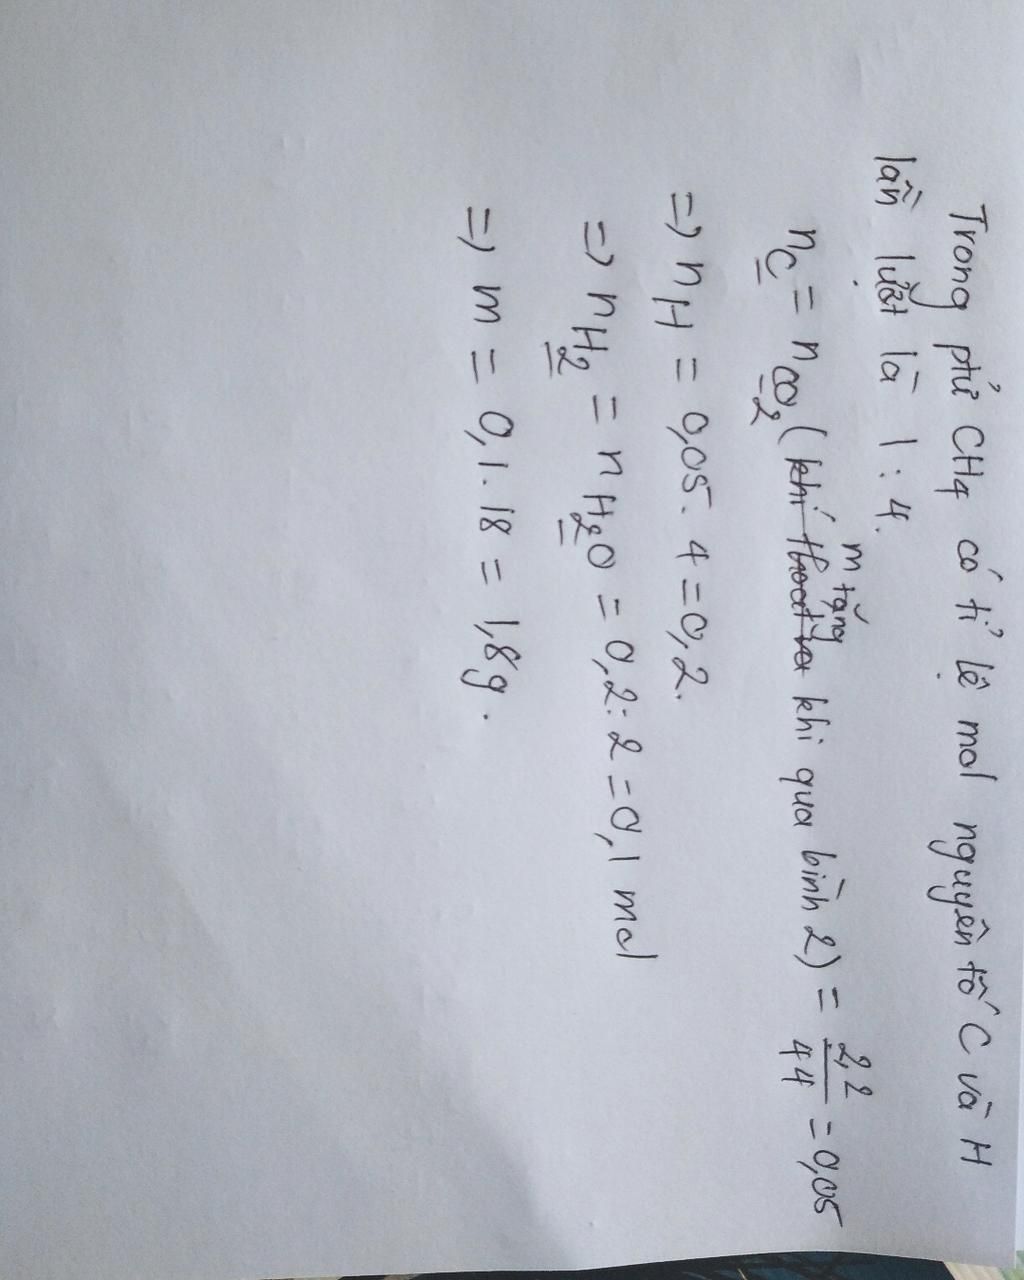 Trong ptử CH4 có tỉ lệ mol nguyên tố C và H
lần lượt là 1 : 4.
m tăng
nC = nCO2 (khí thoát ra khi qua bình 2) = 2,2/44 = 0,05
=> nH = 0,05. 4 = 0,2.
=> nH2 = nH2O = 0,2 : 2 = 0,1 mol
=> m = 0,1. 18 = 1,8g.